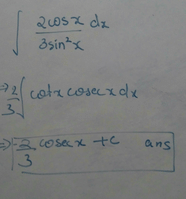 ∫ 2cosx / 3sin²x dx
⇒ 2/3 ∫ cotx cosecx dx
⇒ -2/3 cosecx + c ans